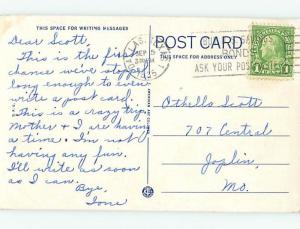 THIS SPACE FOR WRITING MESSAGES
POST CARD
THIS SPACE FOR ADDRESS ONLY
Dear Scott,
This is the first
chance we've stopped
long enough to even
write a post card.
This is a crazy trip
Mother & I are having
a time. I'm not
having any fun.
I'll write as soon
as I can.
Bye,
Ione
SEP
BONDS
ASK YOUR POST
1
Othello Scott
707 Central
Joplin,
Mo.